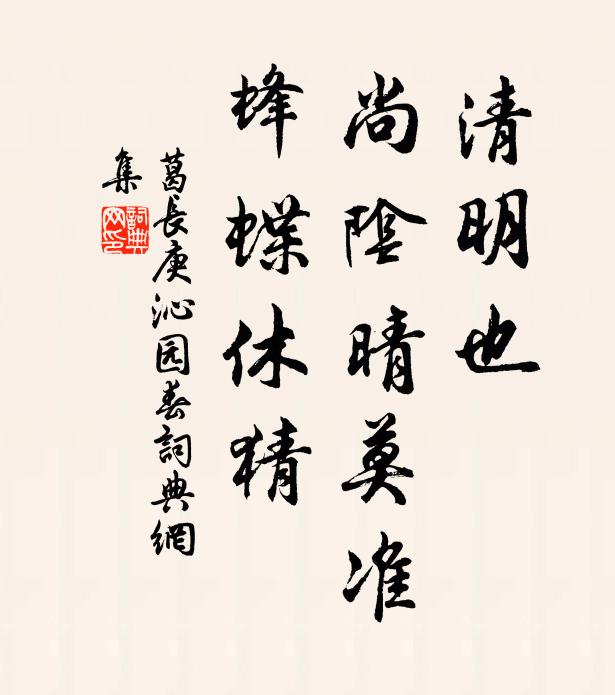 清明也
尚陰晴莫准
蜂蝶休猜
葛長庚沁园春詞典網
集
詞典网印